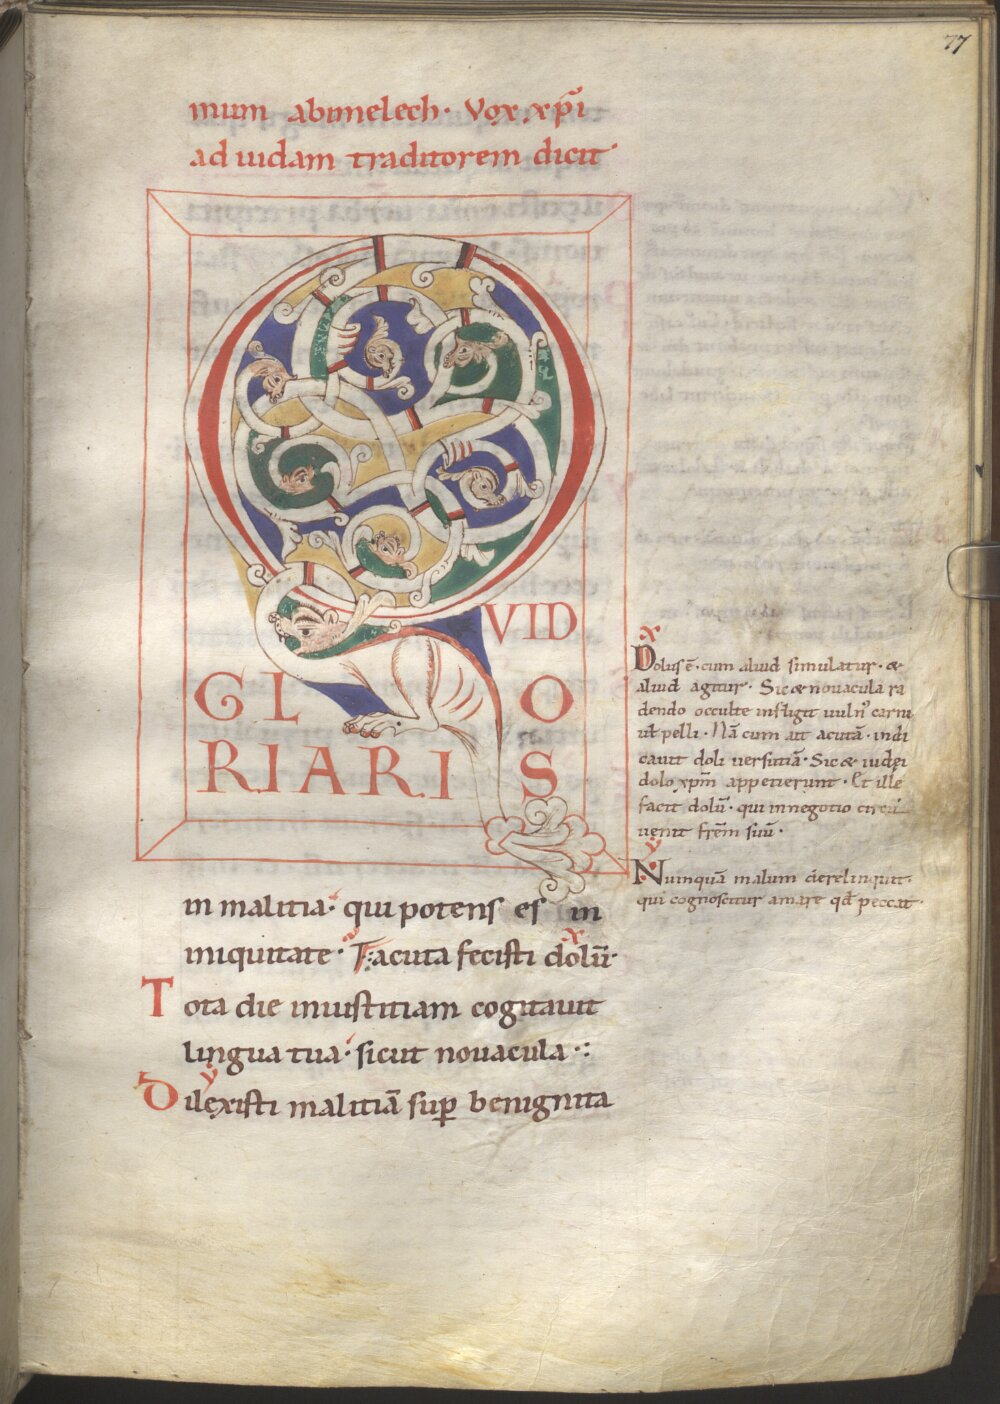 77
mum abimelech· Vox xp̄i
ad iudam traditorem dicit·
QVID
GLO
RIARIS
in malitia· qui potens es in
iniquitate· Facuta fecisti dolū·
Tota die iniustitiam cogitauit
lingua tua· sicut nouacula·:
Dilexisti malitiā sup̄ benignita
x
Dolus ē· cum aliud simulatur· &
aliud agitur· Sic & nouacula ra
dendo occulte infligit uuln' carni
ut pelli· Nā cum ait acutā· indi
cauit doli uersutiā· Sic & iudęi
dolo xp̄m appetierunt· Et ille
facit dolū· qui in negotio circū
uenit frēm suū·
y
Nunquā malum derelinquit·
qui cognoscitur amare qđ peccat·